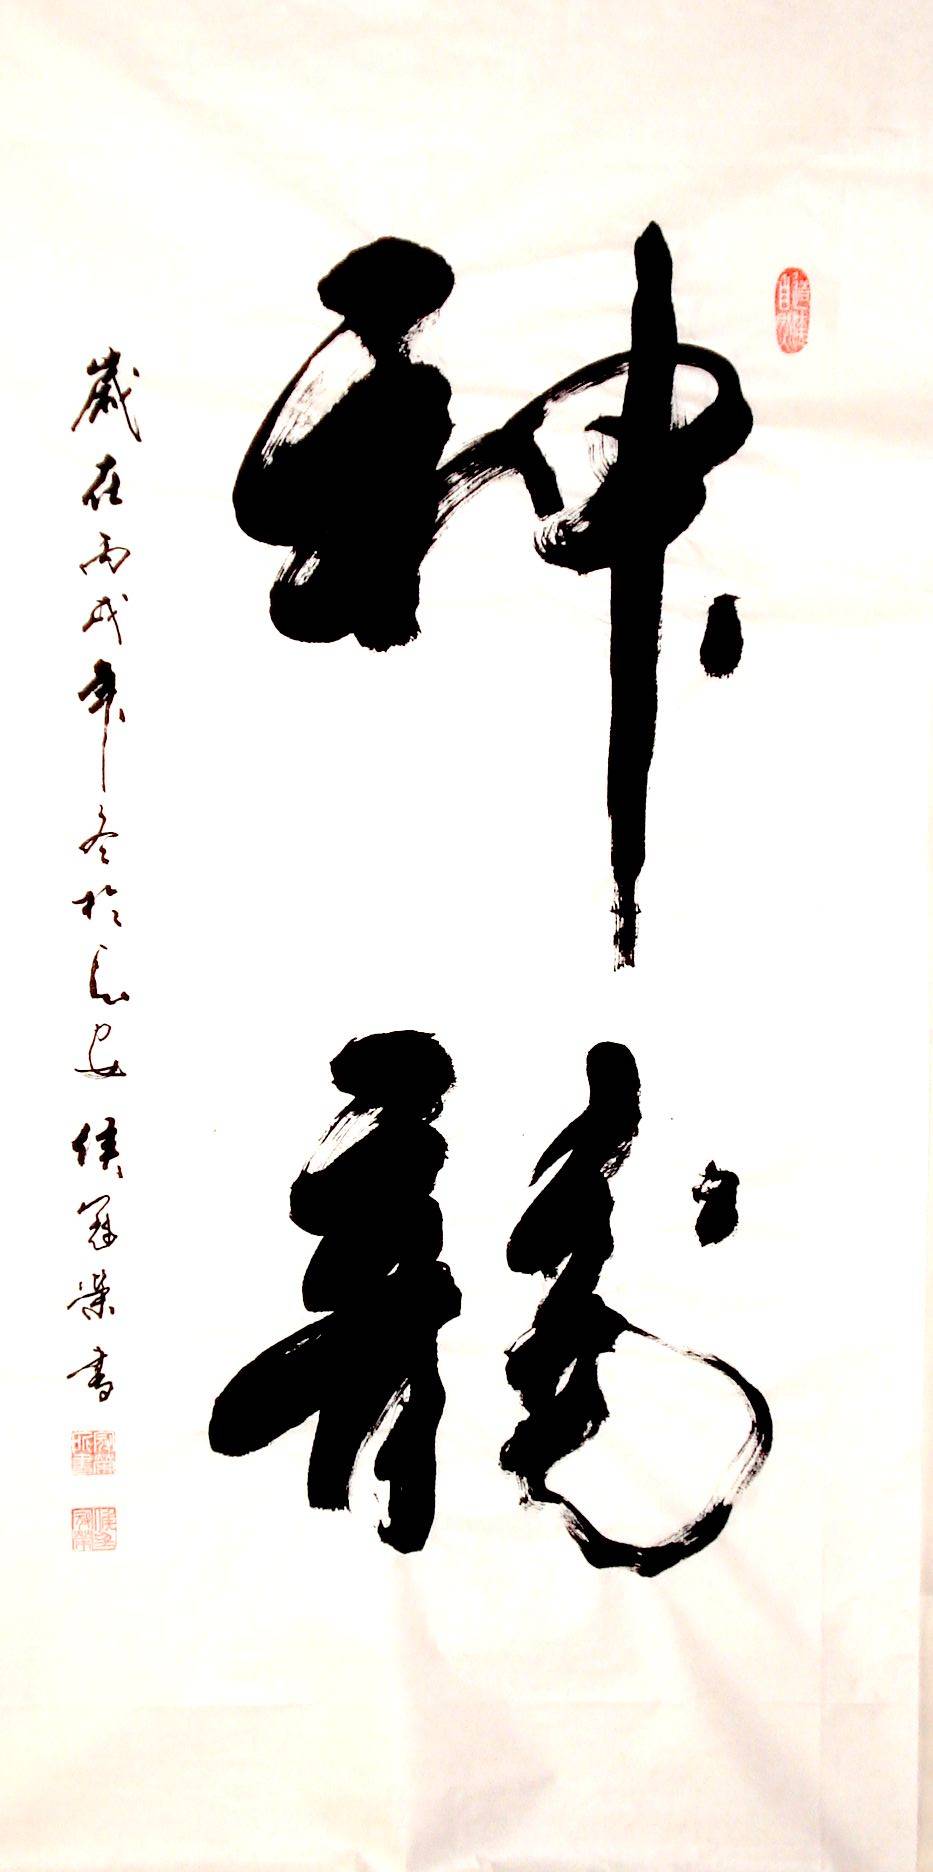 神龍
歲在丙戌年冬於長安 侯冠榮書